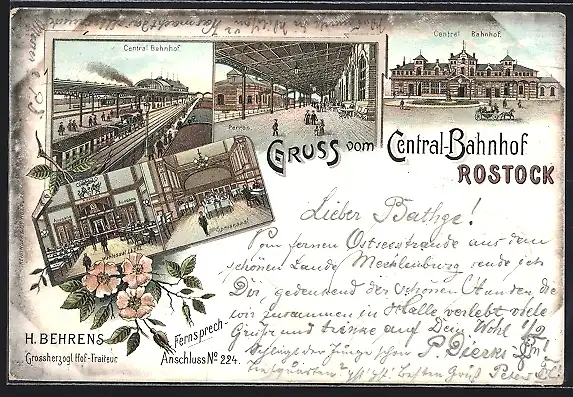 Central Bahnhof.
Central Bahnhof.
Perron.
GRUSS vom Central-Bahnhof
ROSTOCK
Wartesaal
Speisesaal
Lieber Bathge!
Vom fernen Ostseestrande aus dem
schönen Lande Mecklenburg sende ich
Dir, gedenkend der schönen Stunden die
wir zusammen in Halle verlebt viele
Grüße und trinke auf Dein Wohl 1/2
der Junge schon P. Dierks
besten Gruß Peter
H. BEHRENS
Grossherzogl. Hof-Traiteur
Fernsprech-
Anschluss No 224.